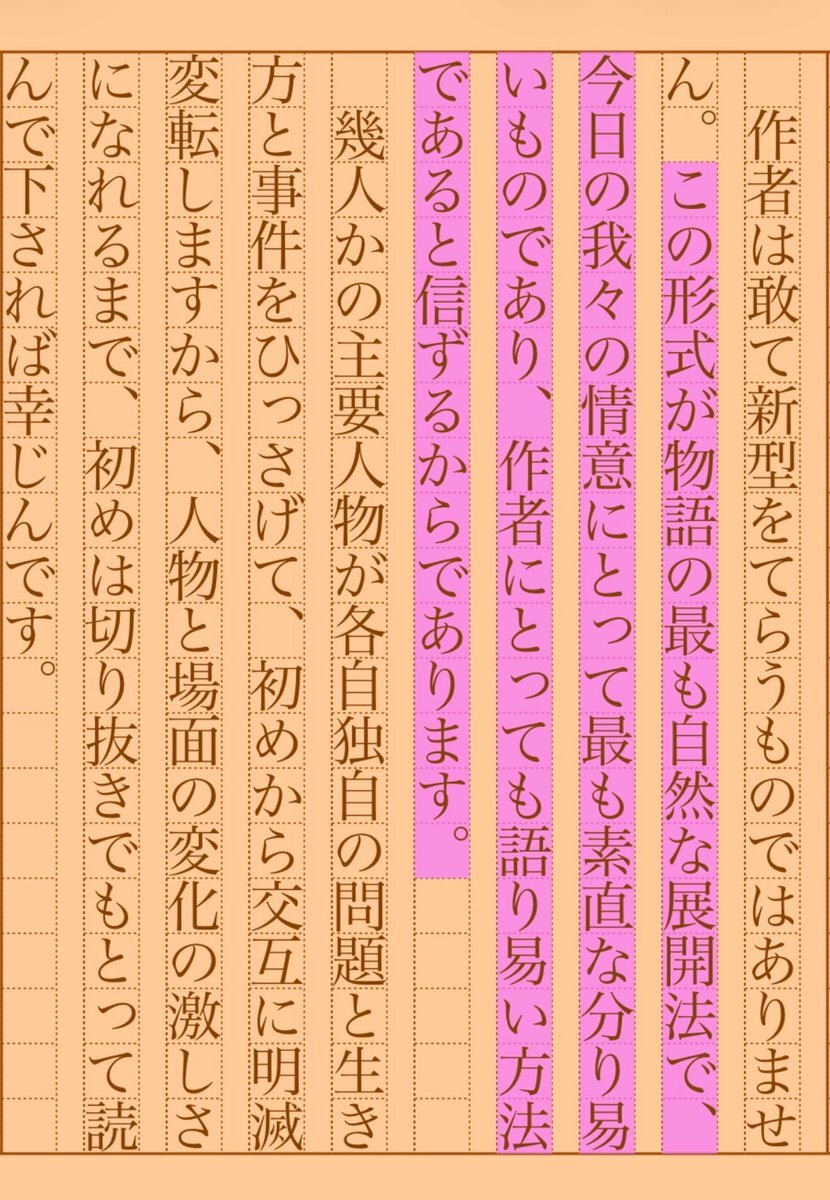 作者は敢て新型をてらうものではありませ
ん。この形式が物語の最も自然な展開法で、
今日の我々の情意にとって最も素直な分り易
いものであり、作者にとっても語り易い方法
であると信ずるからであります。
　幾人かの主要人物が各自独自の問題と生き
方と事件をひっさげて、初めから交互に明滅
変転しますから、人物と場面の変化の激しさ
になれるまで、初めは切り抜きでもとって読
んで下されば幸じんです。